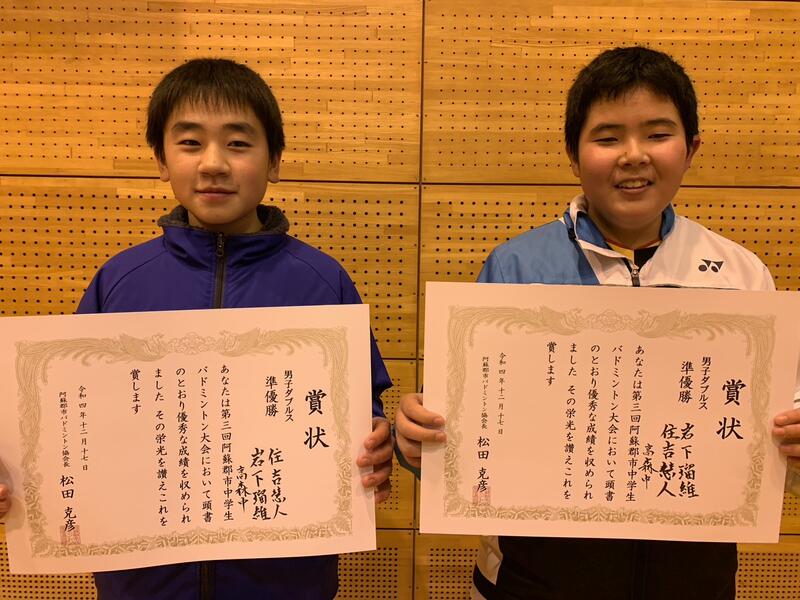 賞状
男子ダブルス
準優勝
住吉慧人
岩下瑠維
高森中
あなたは第三回阿蘇郡市中学生
バドミントン大会において頭書
のとおり優秀な成績を収められ
ました その栄光を讃えこれを
賞します
令和四年十二月十七日
阿蘇郡市バドミントン協会長
松田克彦
賞状
男子ダブルス
準優勝
岩下瑠維
住吉慧人
高森中
あなたは第三回阿蘇郡市中学生
バドミントン大会において頭書
のとおり優秀な成績を収められ
ました その栄光を讃えこれを
賞します
令和四年十二月十七日
阿蘇郡市バドミントン協会長
松田克彦